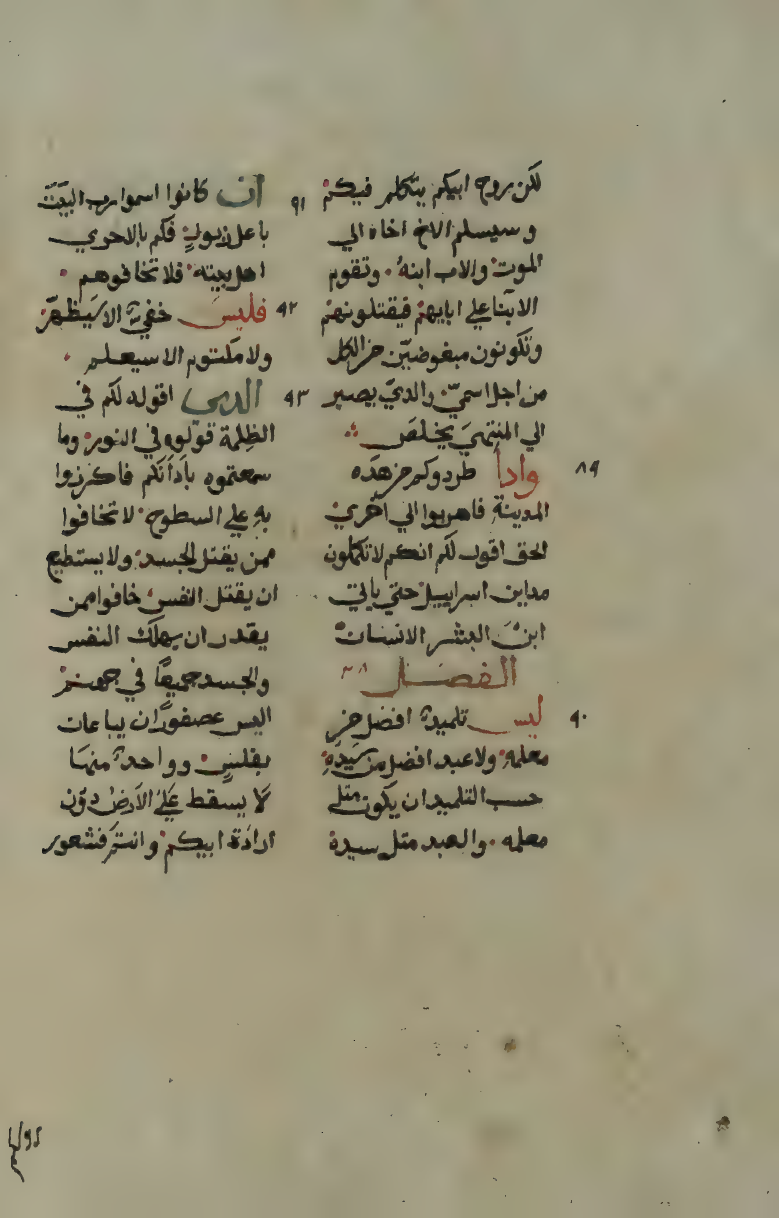 لكن روح ابيكم يتكلم فيكم
وسيسلم الاخ اخاه الي
الموت والاب ابنه وتقوم
الابنا علي ابايهم فيقتلونهم
وتكونون مبغوضين من الكل
من اجل اسمي والدي يصبر
الي المنتهي يخلص
٨٩ وادا طردوكم من هده
المدينة فاهربوا الي اخري
الحق اقول لكم انكم لا تكملون
مداين اسراييل حتي ياتي
ابن البشر الانسان
الفصل ٣٨
٩٠ ليس تلميد افضل من
معلمه ولا عبد افضل من سيده
حسب التلميد ان يكون متل
معلمه والعبد متل سيدة
٩١ ان كانوا اسموا رب البيت
باعلزبول فكم بالاحري
اهل بيته فلا تخافوهم
٩٢ فليس خفي الا سيظهر
ولا مكتوم الا سيعلم
٩٣ الدي اقوله لكم في
الظلمة قولوه في النور وما
سمعتموه بادانكم فاكرزوا
به علي السطوح لا تخافوا
ممن يقتل الجسد ولا يستطيع
ان يقتل النفس خافوا ممن
يقدر ان يهلك النفس
والجسد جميعا في جهنم
اليس عصفوران يباعان
بفلس وواحد منها
لا يسقط علي الارض دون
ارادة ابيكم وانتم فشعور